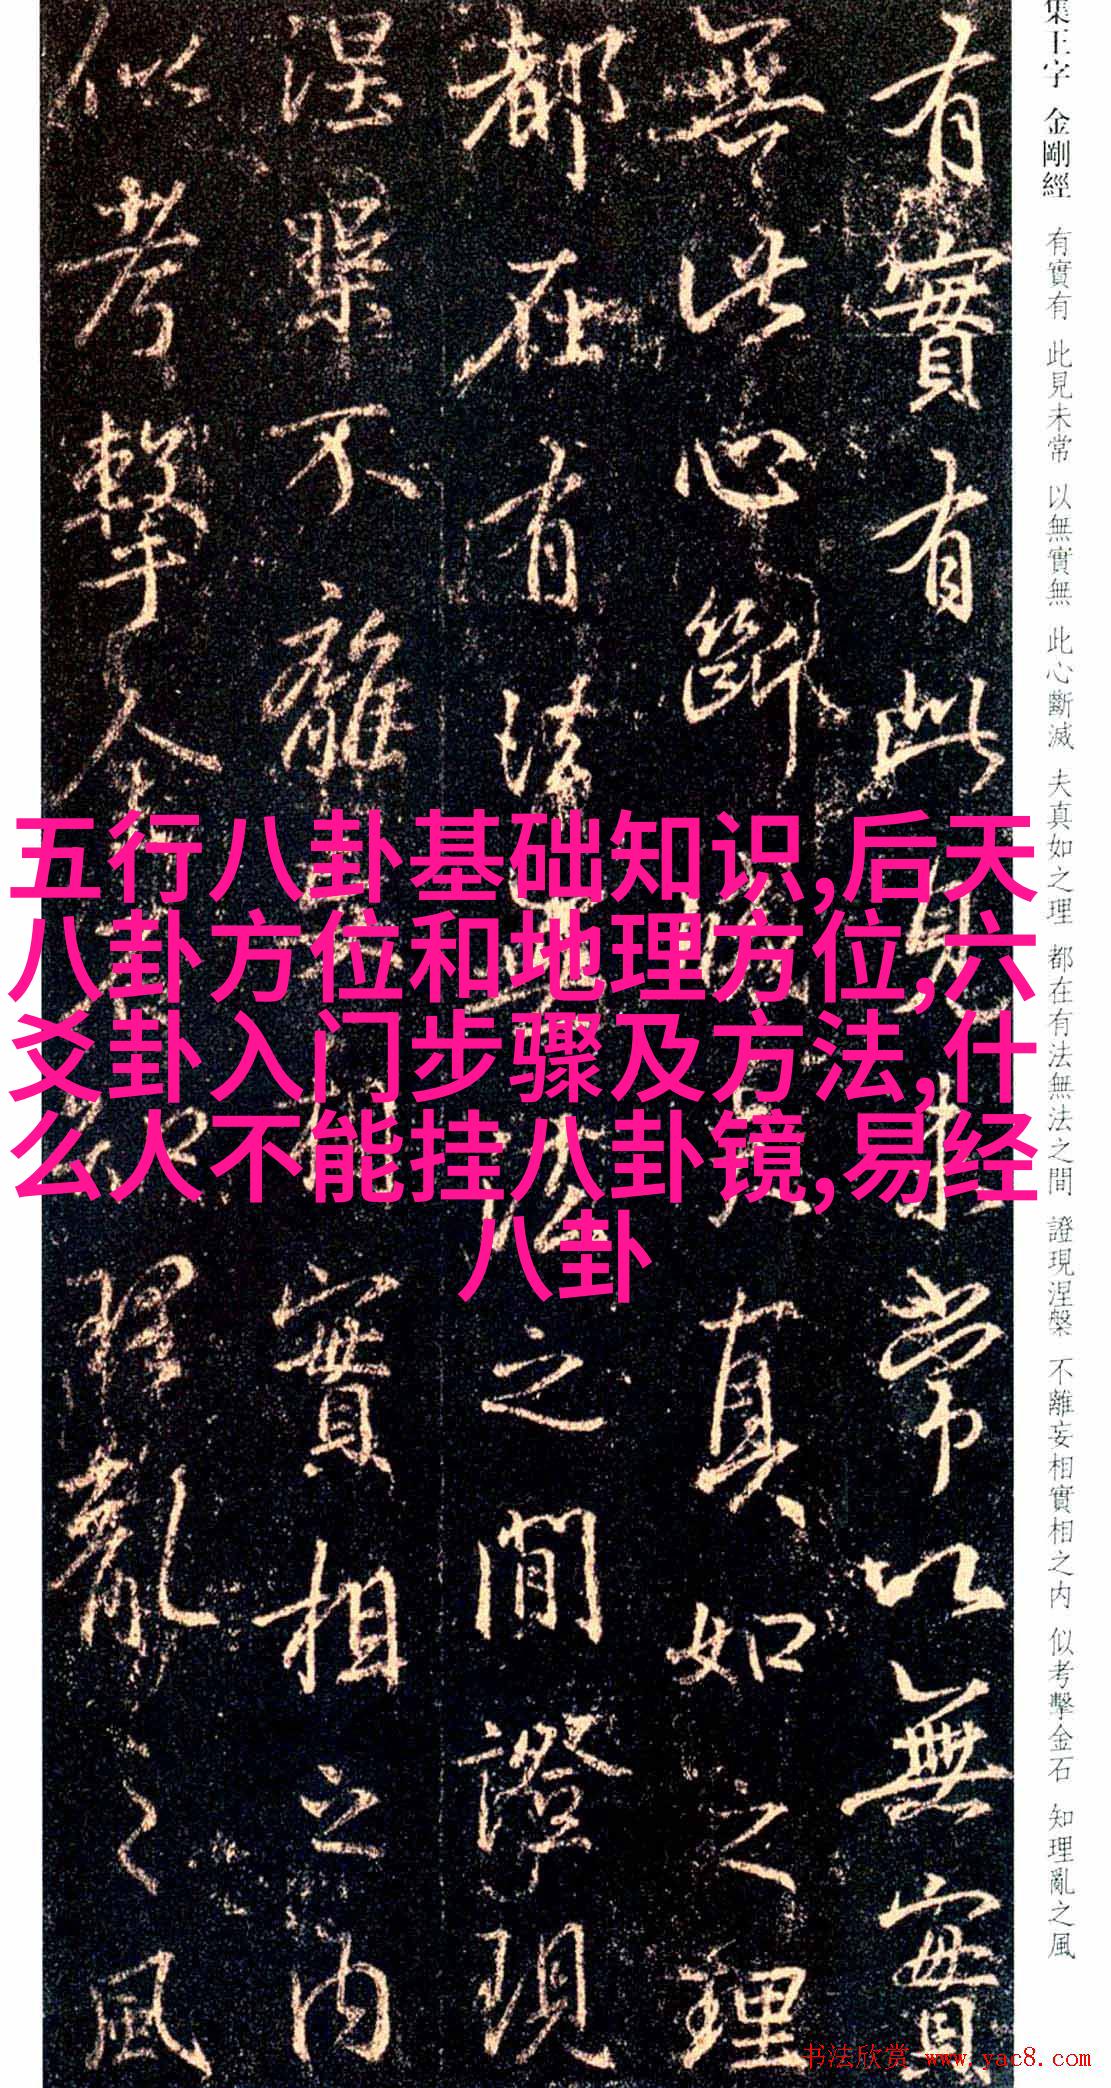 集王字 金剛經 有實有 此見未常 以無實無 此心斷滅 夫真如之理 都在有法無法之間 證現涅槃 不離妄相實相之内 似考擊金石 知理亂之風
有實有此見未常以無實
無此心斷滅夫真如之理
都在有法無法之間證現
涅槃不離妄相實相之内
似考擊金石知理亂之風
五行八卦基础知识,后天
八卦方位和地理方位,六
爻卦入门步骤及方法,什
么人不能挂八卦镜,易经
八卦
书法欣赏 www.yac8.com